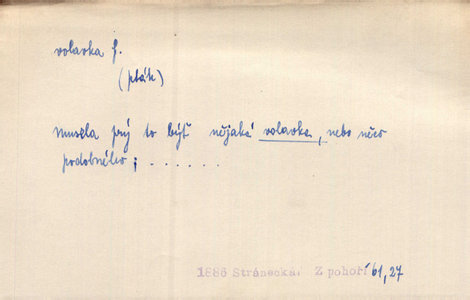 volavka f.
(pták)
musela prý to býti nějaká volavka, nebo něco
podobného; . . . . . .
1886 Stránecká: Z pohoří 61,27